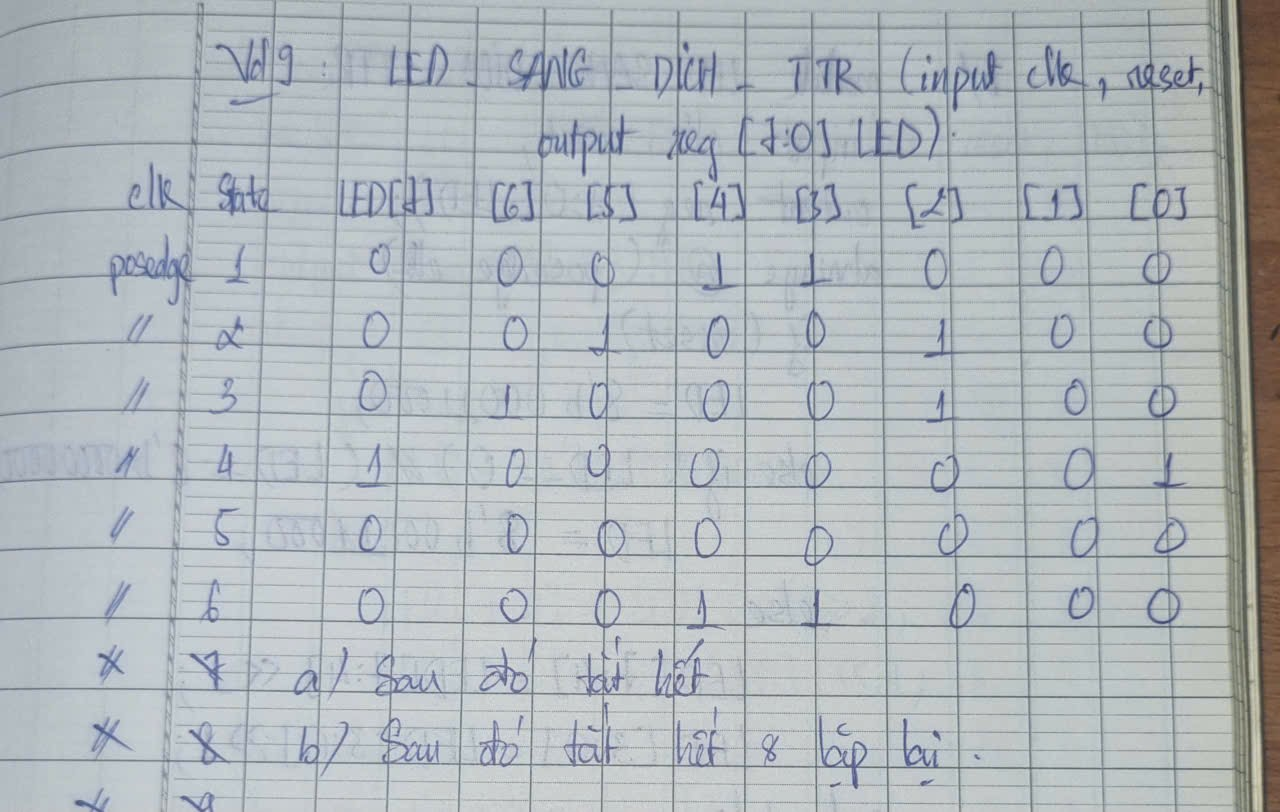 Vd 9 : LED - SANG - DỊCH - TTR (input clk, reset,
output reg [7:0] LED).
clk State LED[7] [6] [5] [4] [3] [2] [1] [0]
posedge 1 0 0 0 1 1 0 0 0
" 2 0 0 1 0 0 1 0 0
" 3 0 1 0 0 0 1 0 0
" 4 1 0 0 0 0 0 0 1
" 5 0 0 0 0 0 0 0 0
" 6 0 0 0 1 1 0 0 0
a) Sau đó tắt hết
b) Sau đó tắt hết & lặp lại.